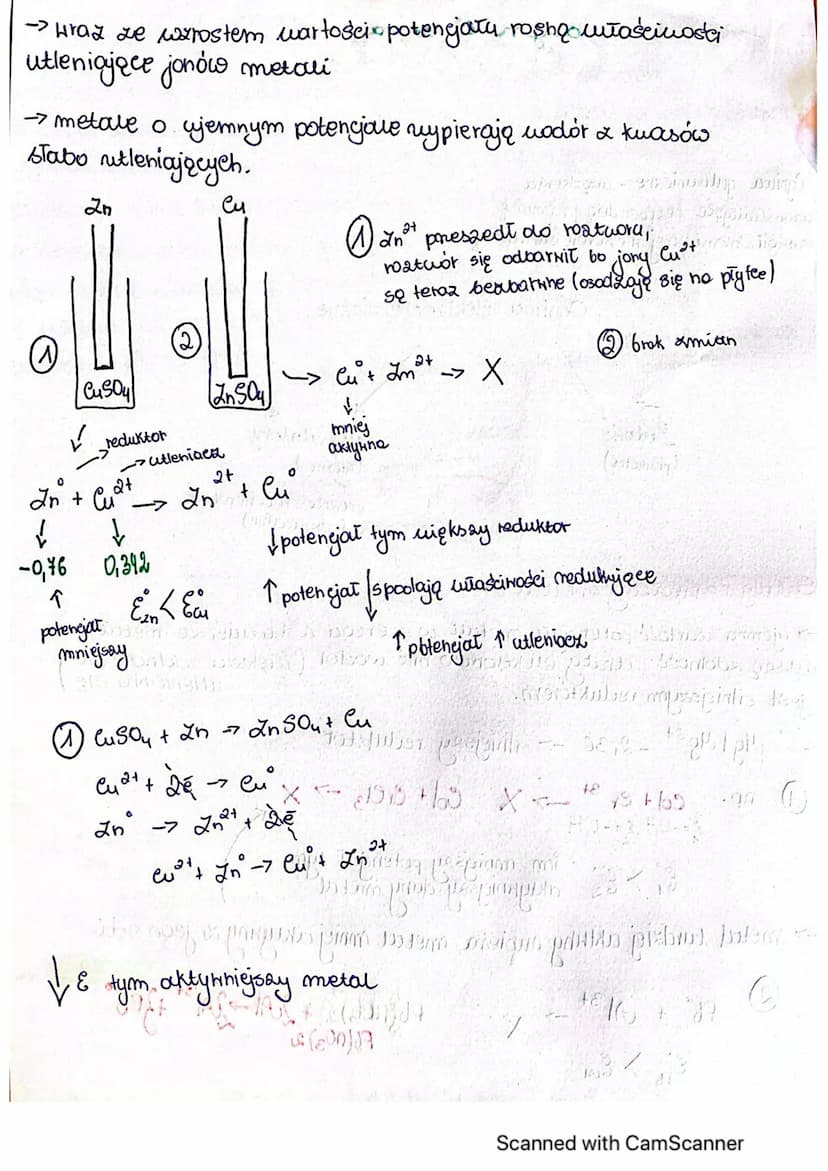 → wraz ze wzrostem wartości potencjału rosną właściwości
utleniające jonów metali
→ metale o ujemnym potencjale wypierają wodór z kwasów
słabo utleniających.
Zn
Cu
① Zn²⁺ przeszedł do roztworu,
roztwór się odbarwił bo jony Cu²⁺
są teraz bezbarwne (osadzają się na płytce)
①
②
② brak zmian
CuSO₄
ZnSO₄
→ Cu⁰ + Zn²⁺ → X
↓
mniej
aktywna
→ reduktor
→ utleniacz
Zn⁰ + Cu²⁺ → Zn²⁺ + Cu⁰
↓ ↓
-0,76 0,342
↑
potencjał
mniejszy
E°Zn < E°Cu
↓ potencjał tym większy reduktor
↑ potencjał spadają właściwości redukujące
↑ potencjał ↑ utleniacz
① CuSO₄ + Zn → ZnSO₄ + Cu
Cu²⁺ + 2ē → Cu⁰
Zn⁰ → Zn²⁺ + 2ē
Cu²⁺ + Zn⁰ → Cu⁰ + Zn²⁺
↓ E tym aktywniejszy metal
Scanned with CamScanner